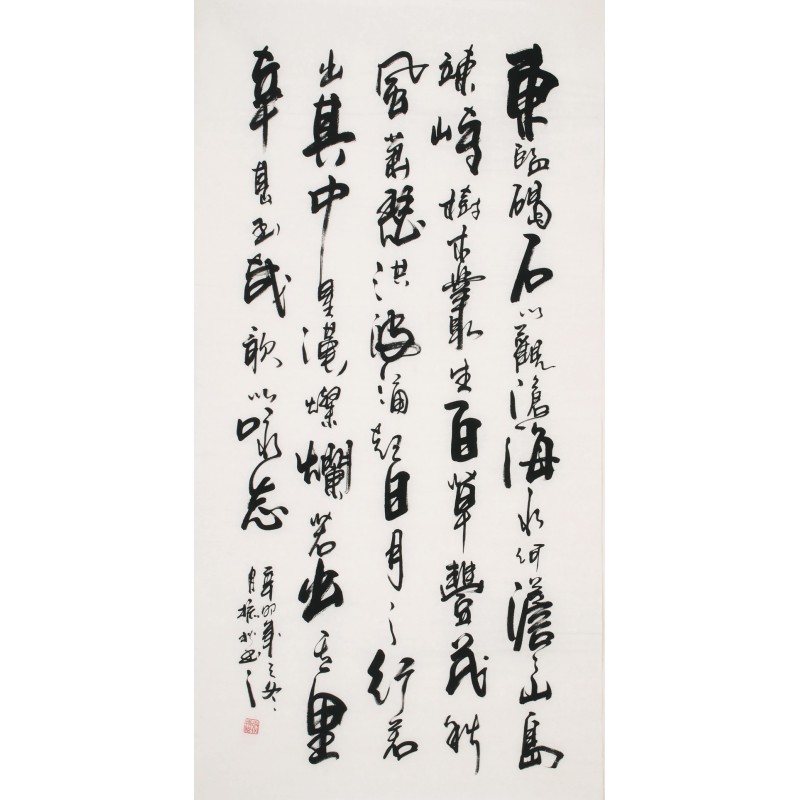 東臨碣石以觀滄海水何澹々山島
竦峙樹木叢生百草豐茂秋
風蕭瑟洪波涌起日月之行若
出其中星漢燦爛若出其里
幸甚至哉歌以咏志
辛卯年之冬
书之